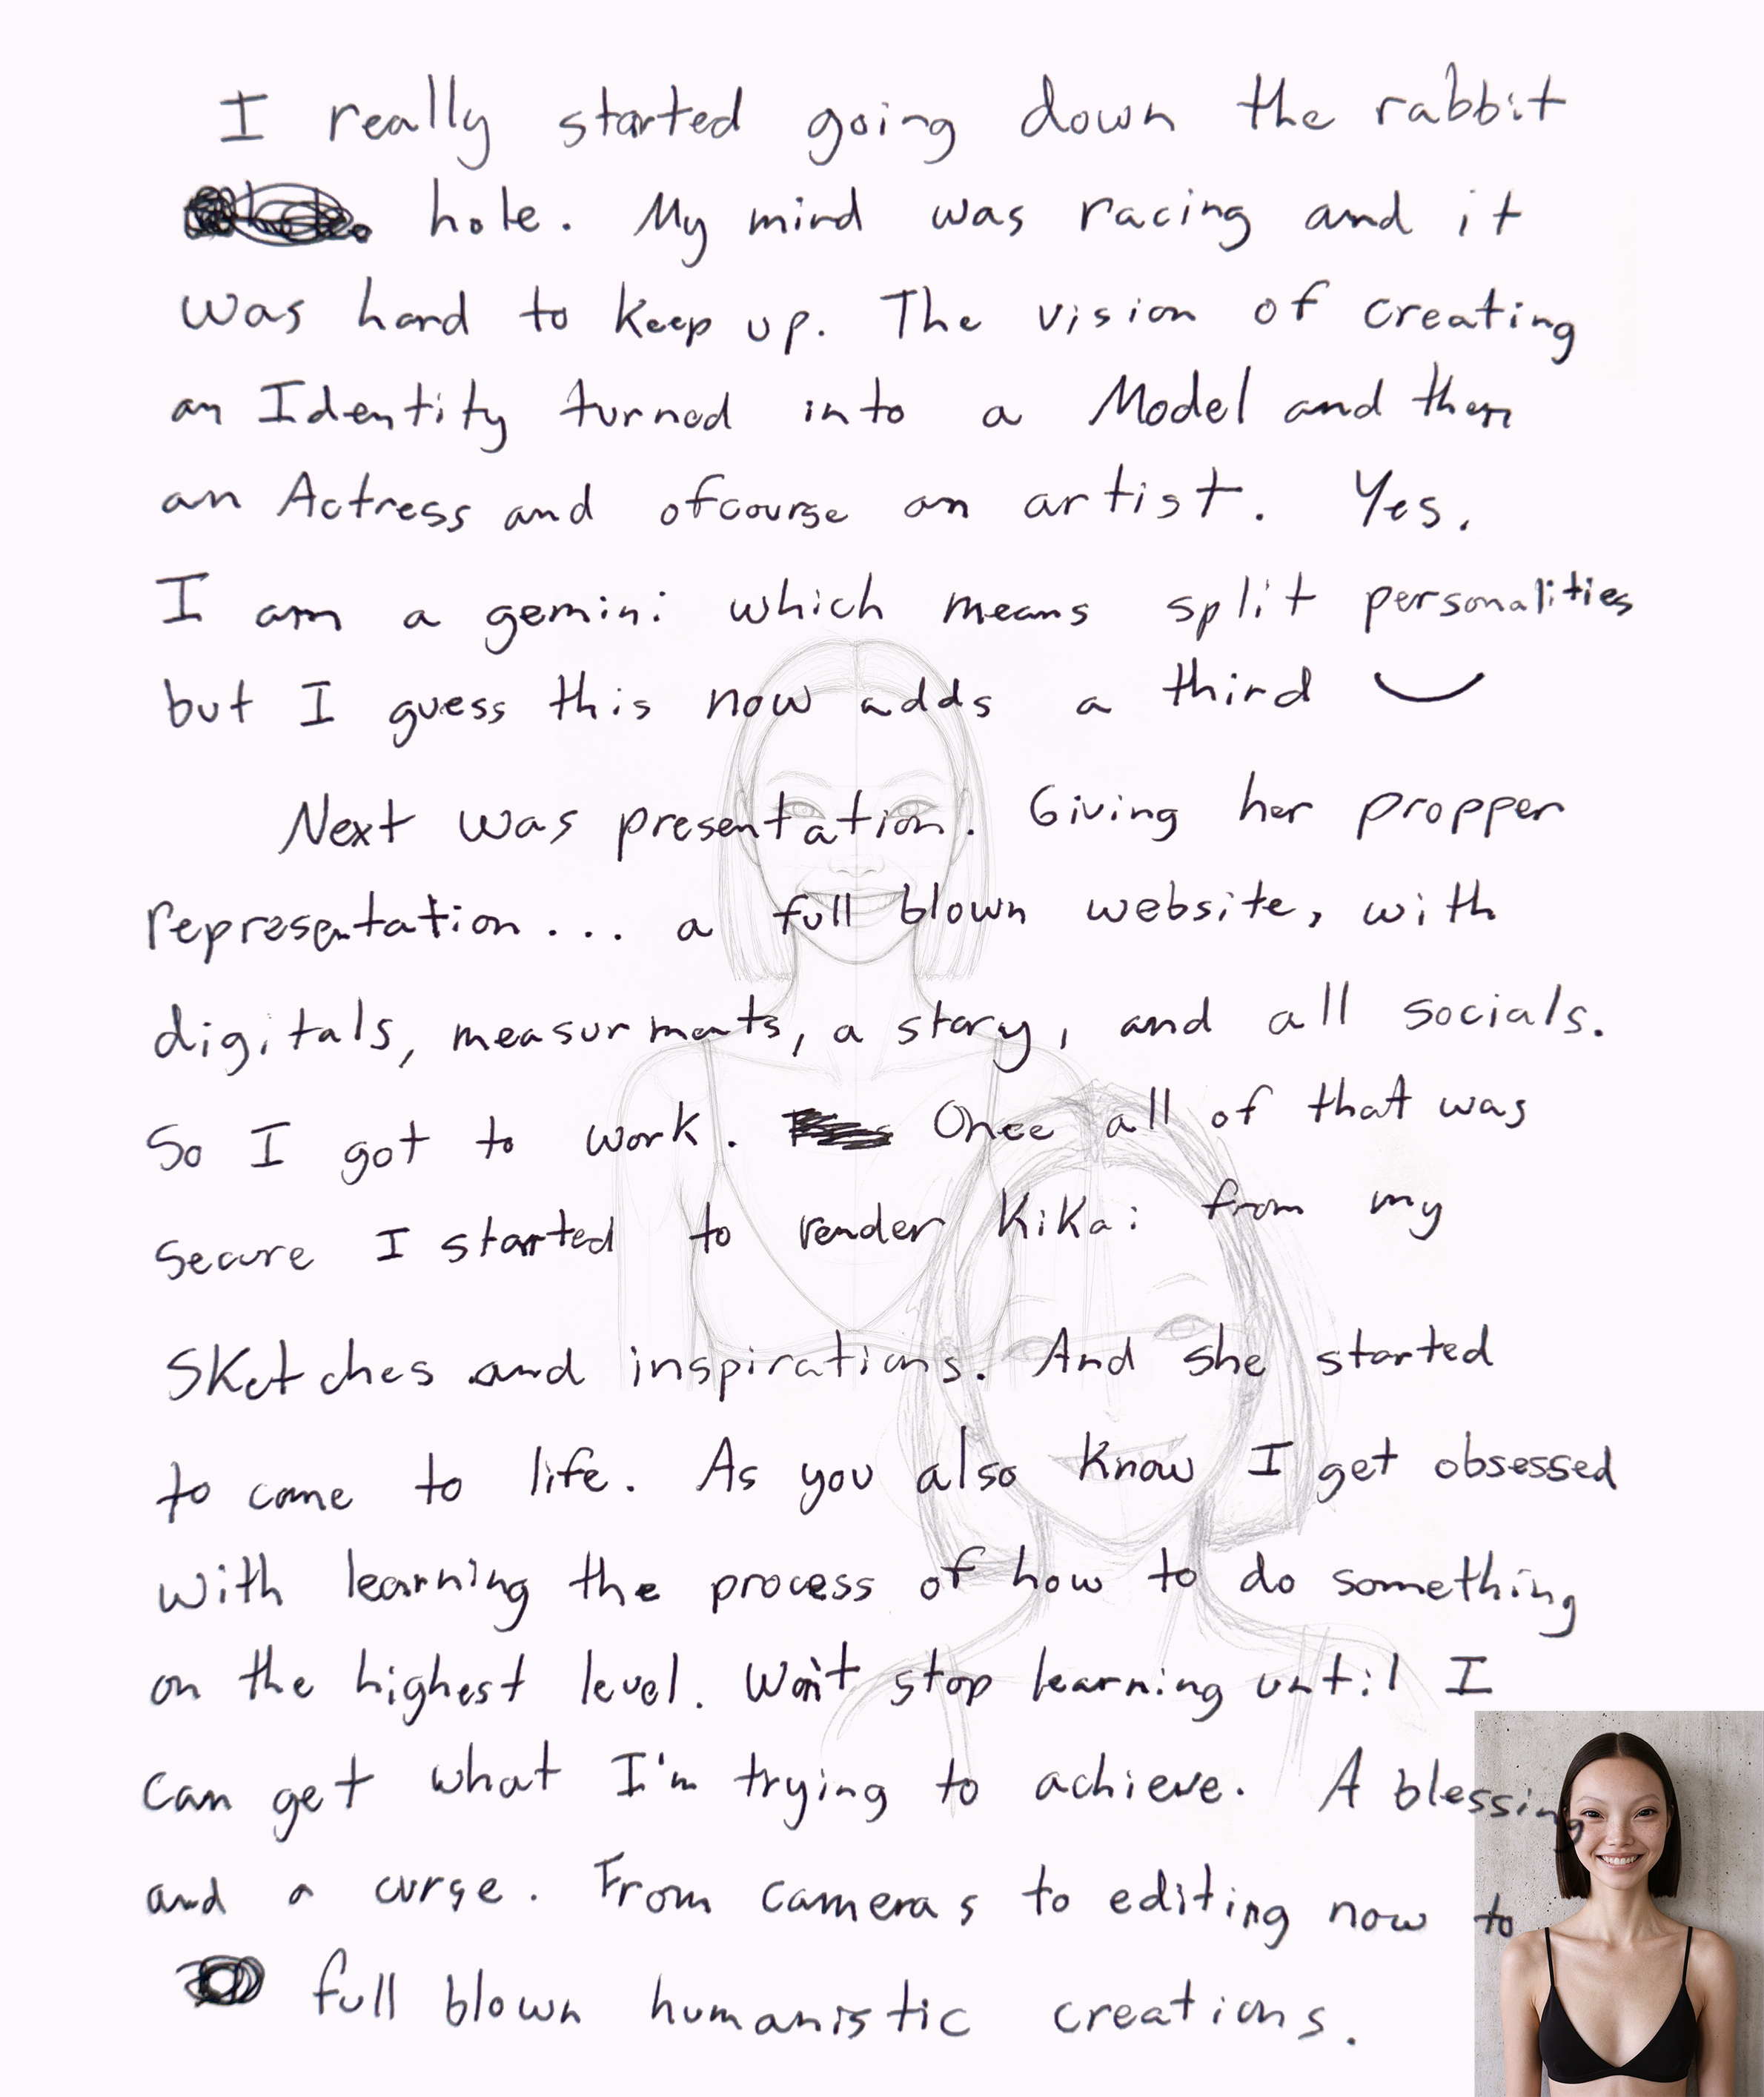 I really started going down the rabbit
hole. My mind was racing and it
was hard to keep up. The vision of creating
an Identity turned into a Model and then
an Actress and ofcourse an artist. Yes,
I am a gemini which means split personalities
but I guess this now adds a third
Next was presentation. Giving her propper
representation... a full blown website, with
digitals, measurments, a story, and all socials.
So I got to work. Once all of that was
secure I started to render Kika: from my
sketches and inspirations. And she started
to come to life. As you also know I get obsessed
with learning the process of how to do something
on the highest level. Won't stop learning until I
can get what I'm trying to achieve. A blessing
and a curse. From cameras to editing now to
full blown humanistic creations.